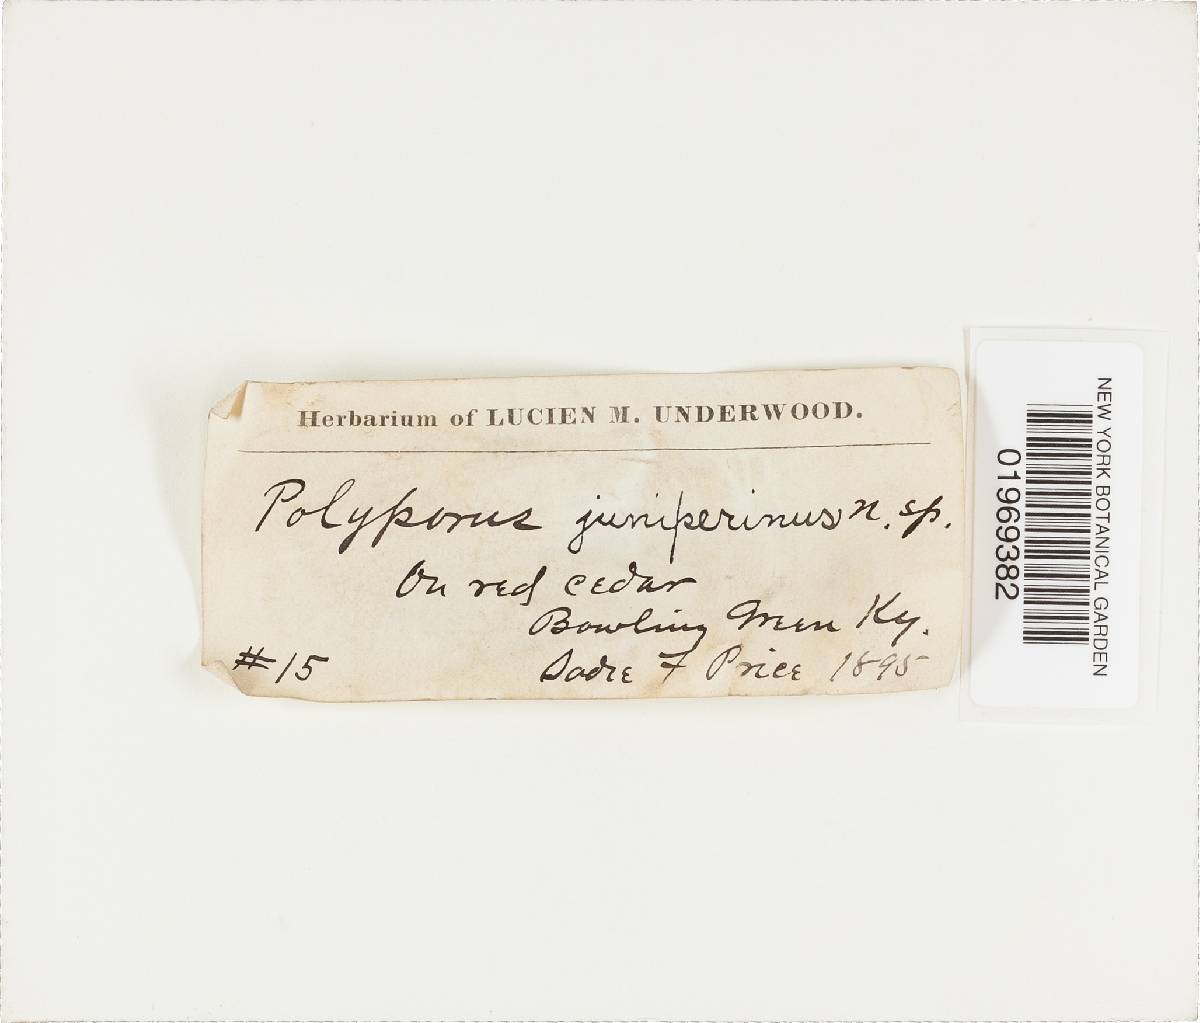 Herbarium of LUCIEN M. UNDERWOOD.
Polyporus juniperinus n. sp.
On red cedar
Bowling Green Ky.
#15 Sadie F Price 1895
NEW YORK BOTANICAL GARDEN
01969382